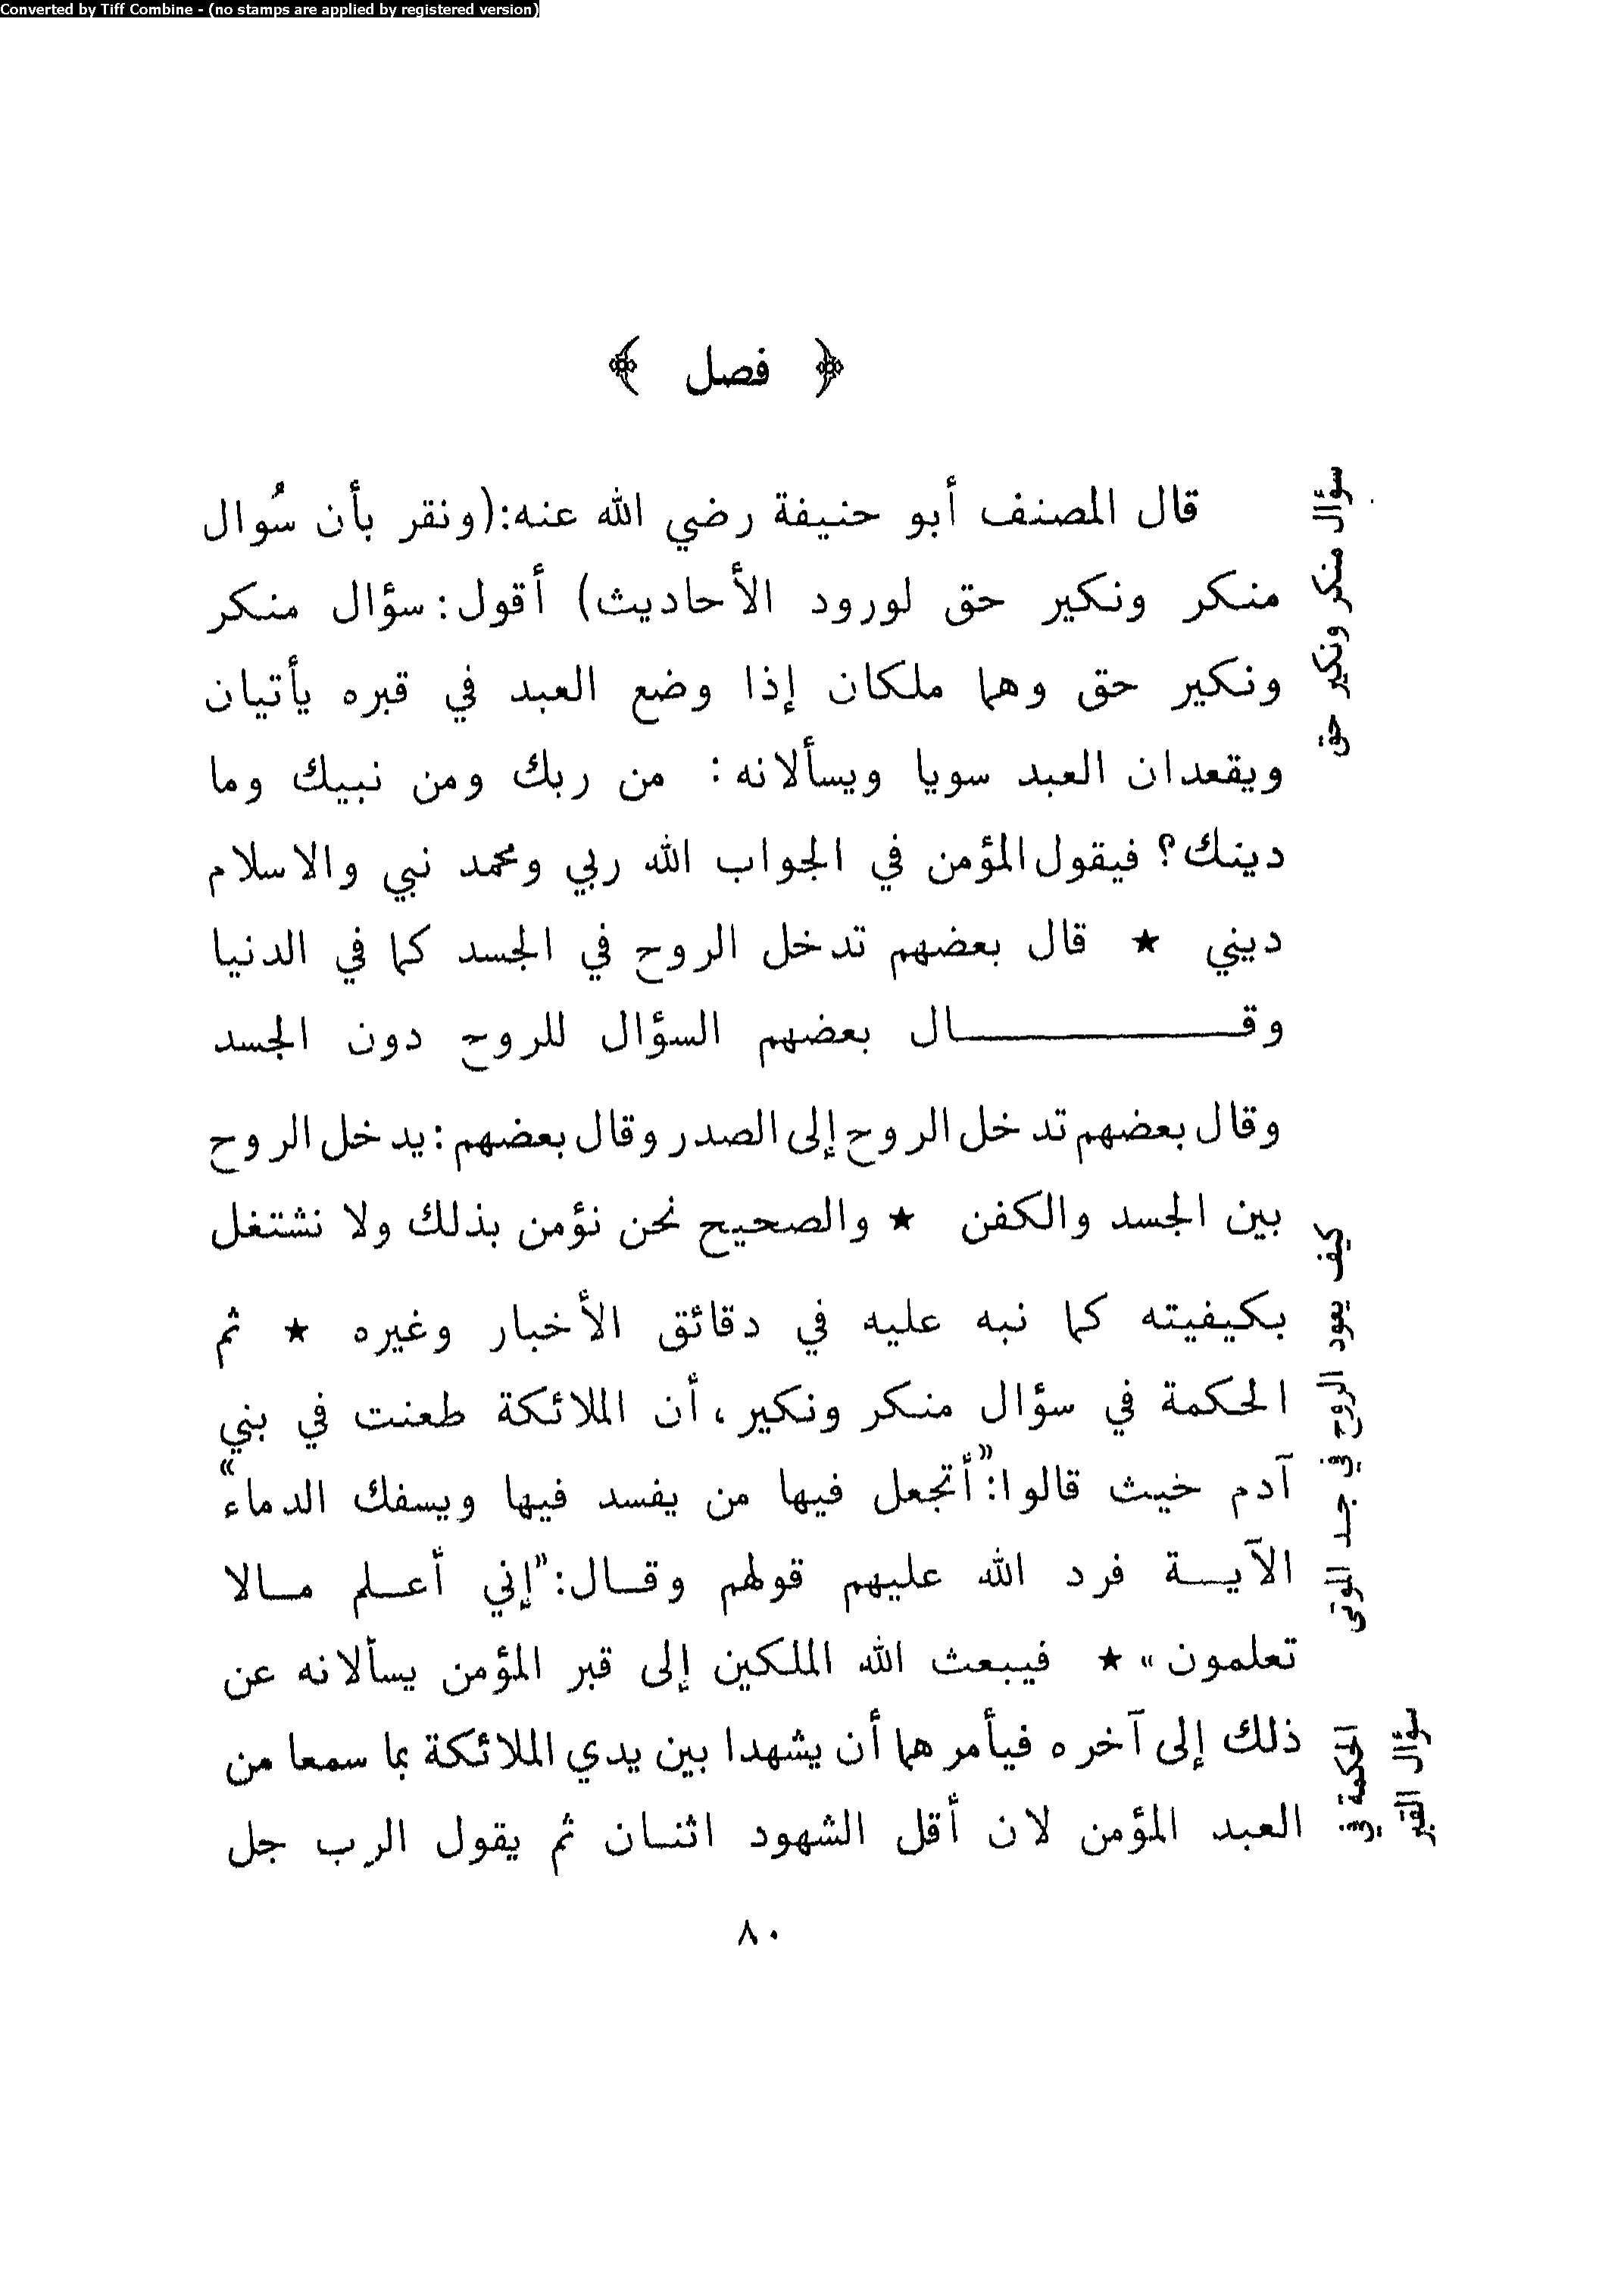 Converted by Tiff Combine - (no stamps are applied by registered version)
﴿ فصل ﴾
قال المصنف أبو حنيفة رضي الله عنه:(ونقر بأن سُوال
منكر ونكير حق لورود الأحاديث) أقول: سؤال منكر
ونكير حق وهما ملكان إذا وضع العبد في قبره يأتيان
ويقعدان العبد سويا ويسألانه: من ربك ومن نبيك وما
دينك؟ فيقول المؤمن في الجواب الله ربي ومحمد نبي والاسلام
ديني ★ قال بعضهم تدخل الروح في الجسد كما في الدنيا
وقـــــــــــال بعضهم السؤال للروح دون الجسد
وقال بعضهم تدخل الروح إلى الصدر وقال بعضهم: يدخل الروح
بين الجسد والكفن ★ والصحيح نحن نؤمن بذلك ولا نشتغل
بكيفيته كما نبه عليه في دقائق الأخبار وغيره ★ ثم
الحكمة في سؤال منكر ونكير، أن الملائكة طعنت في بني
آدم خيث قالوا: «أتجعل فيها من يفسد فيها ويسفك الدماء»
الآيـــة فرد الله عليهم قولهم وقـــال: «إني أعـــلم مـــالا
تعلمون» ★ فيبعث الله الملكين إلى قبر المؤمن يسألانه عن
ذلك إلى آخره فيأمرهما أن يشهدا بين يدي الملائكة بما سمعا من
العبد المؤمن لان أقل الشهود اثنـان ثم يقول الرب جل
سؤال منكر ونكير حق
كيف يعود الروح في جسد الموتى
الحكمة في
سؤال القبر
٨٠